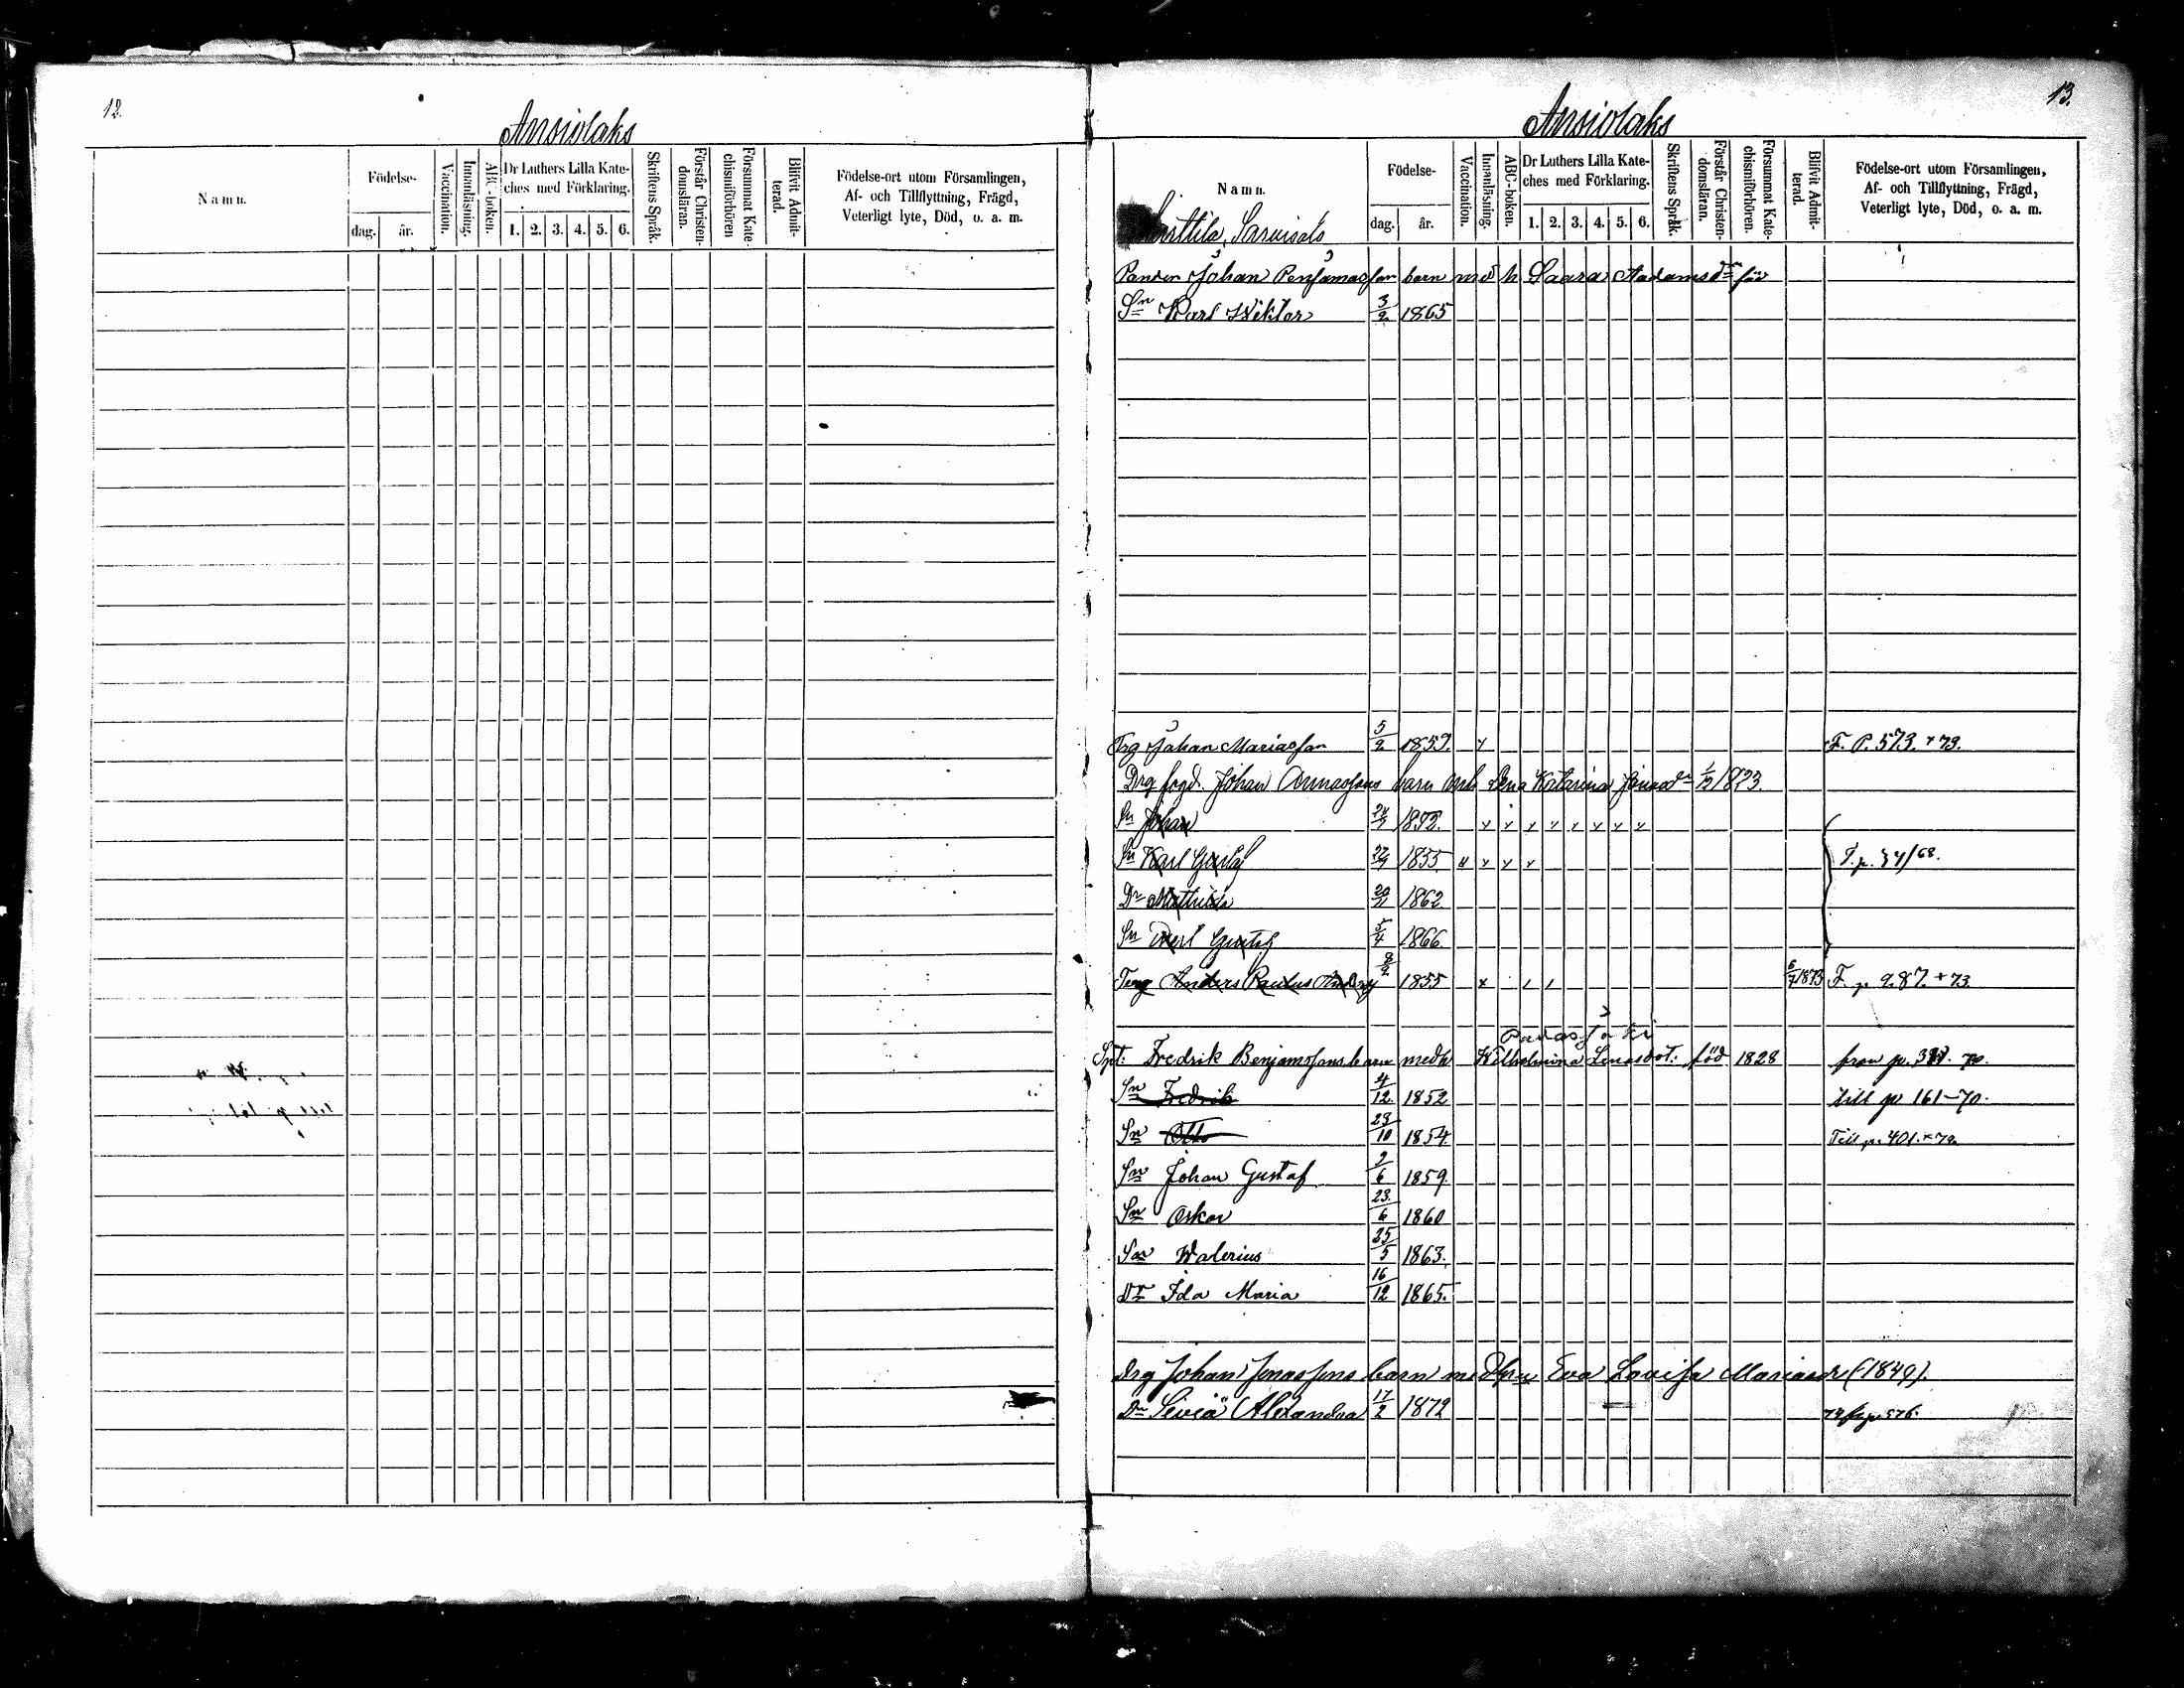 12.
Ansiolaks
Namn.
Födelse-
dag. år.
Vaccination.
Innanläsning.
ABC-boken.
Dr Luthers Lilla Kate-
ches med Förklaring.
1. 2. 3. 4. 5. 6.
Skriftens Språk.
Förstår Christen-
domsläran.
Försummat Kate-
chismiförhören
Blifvit Admit-
terad.
Födelse-ort utom Församlingen,
Af- och Tillflyttning, Frägd,
Veterligt lyte, Död, o. a. m.
13.
Ansiolaks
Namn.
Födelse-
dag. år.
Vaccination.
Innanläsning.
ABC-boken.
Dr Luthers Lilla Kate-
ches med Förklaring.
1. 2. 3. 4. 5. 6.
Skriftens Språk.
Förstår Christen-
domsläran.
Försummat Kate-
chismiförhören.
Blifvit Admit-
terad.
Födelse-ort utom Församlingen,
Af- och Tillflyttning, Frägd,
Veterligt lyte, Död, o. a. m.
Johan barn med h Saara Aadamsdr
Sn Karl Wiktor 3/2 1865
Johan Mariasson 5/2 1859. F. P. 573. + 73.
Drg Johan Annassons barn med Lena Katarina
Sn Johan
Sn Karl Gustaf 1855 T. p. 34/68.
Dr Mathilda 1862
Sn Karl Gustaf 5/4 1866.
Anders Paulus 8/2 1855 1873 F. p. 987. + 73.
Fredrik Benjamssons barn med h Wilhelmina Lenasdot: född 1828 från p. 70.
Sn Fredrik 4/12 1852 till p 161-70.
Sn Otto 23/10 1854 Till p. 401.
Sn Johan Gustaf 2/6 1859.
Sn Oskar 23/6 1860
Sn Walerius 25/5 1863.
Dr Ida Maria 16/12 1865.
Drg Johan Jonassons barn med Eva Lovisa Mariasdr (1849).
Dr Alexandra 17/2 1872